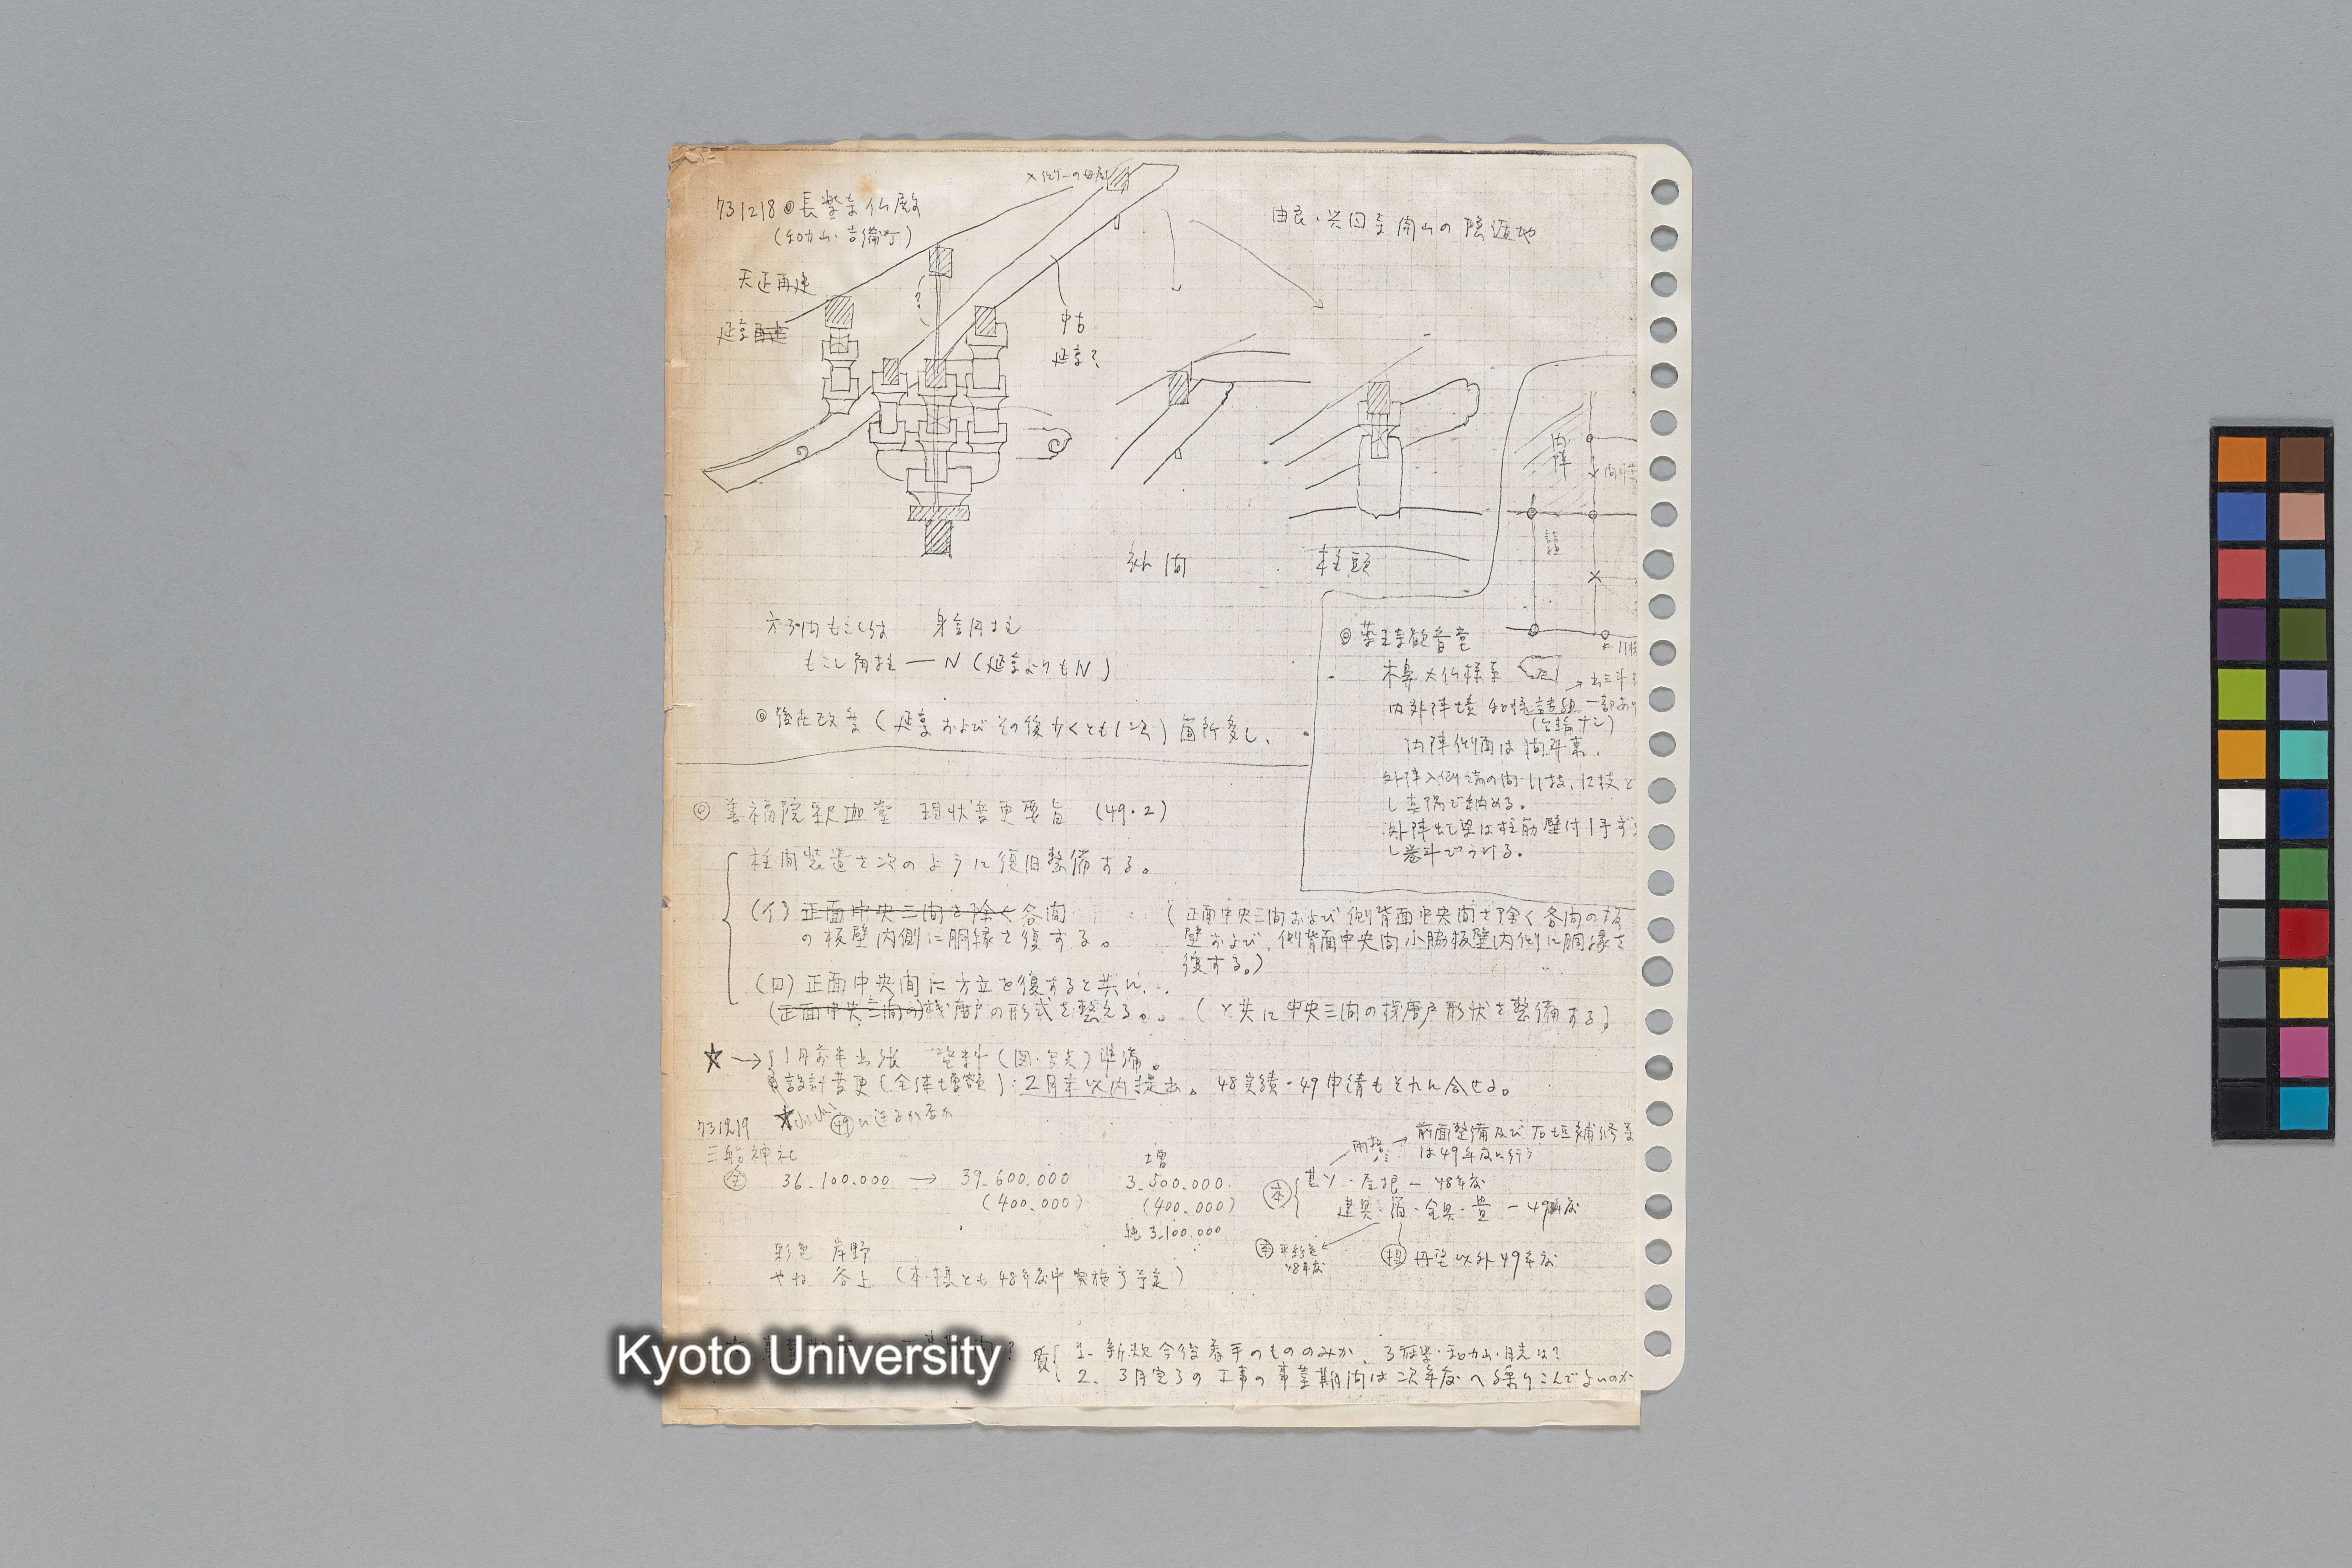 731218 ◎長楽寺仏殿
(和歌山・吉備町)
由良・興国寺開山の隠退地
天正再建
延享再建
?
中古
延享?
外間
柱頭
内陣
方3間もこしは 身舎円柱
もこし角柱 — N (延享よりもN)
◎後世改変(延享およびその後少くとも1次)箇所多し、
◎薬王寺観音堂
木鼻大仏様系
内外陣境 和様詰組 一部あり
(台輪ナシ)
内陣側面は間斗束。
外陣入側端の間 11枝、12枝と
外陣虹梁は柱筋壁付1手ずつ
し巻斗でうける。
◎ 善福院釈迦堂 現状変更要旨 (49・2)
柱間装置を次のように復旧整備する。
(イ) 正面中央三間を除く各間
の板壁内側に胴縁を復する。
(正面中央三間および側背面中央間を除く各間の板
壁および、側背面中央間小脇板壁内側に胴縁を
復する。)
(ロ) 正面中央間に方立を復すると共に、
(正面中央三間の)桟唐戸の形式を整える。
(と共に中央三間の桟唐戸形状を整備する)
☆→ 1月前半出張 資料(図・写真)準備。
設計変更(全体増額):2月半以内提出。48実績-49申請もそれに合せる。
☆ ㊾に送るか否か
731219
三船神社
全 36.100.000 → 39.600.000 増 3.500.000.
(400.000) (400.000)
純 3.100.000
前面整備及び石垣補修等
は49年度に行う
本 基ソ・屋根 — 48年度
建具・ ・金具・畳 — 49年度
48年度
丹塗以外49年度
彩色 岸野
やね 谷上 (本・摂とも48年度中実施予定)
質 1. 新規今後着手のもののみか、
2. 3月完了の工事の事業期間は次年度へ繰りこんでよいのか
Kyoto University